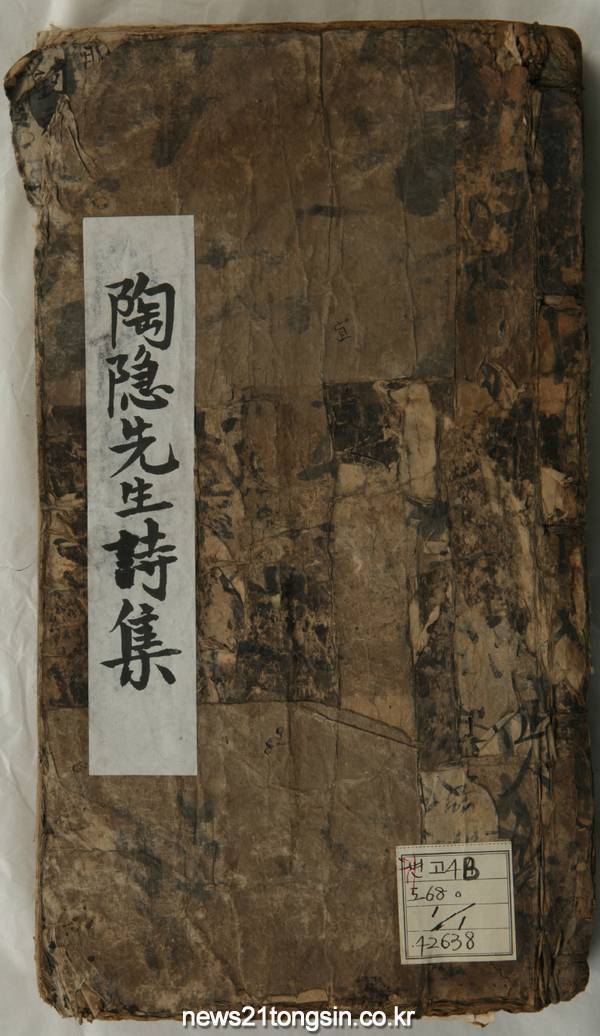 陶隐先生詩集
宜
고4B
568
1/1
42638
news21tongsin.co.kr